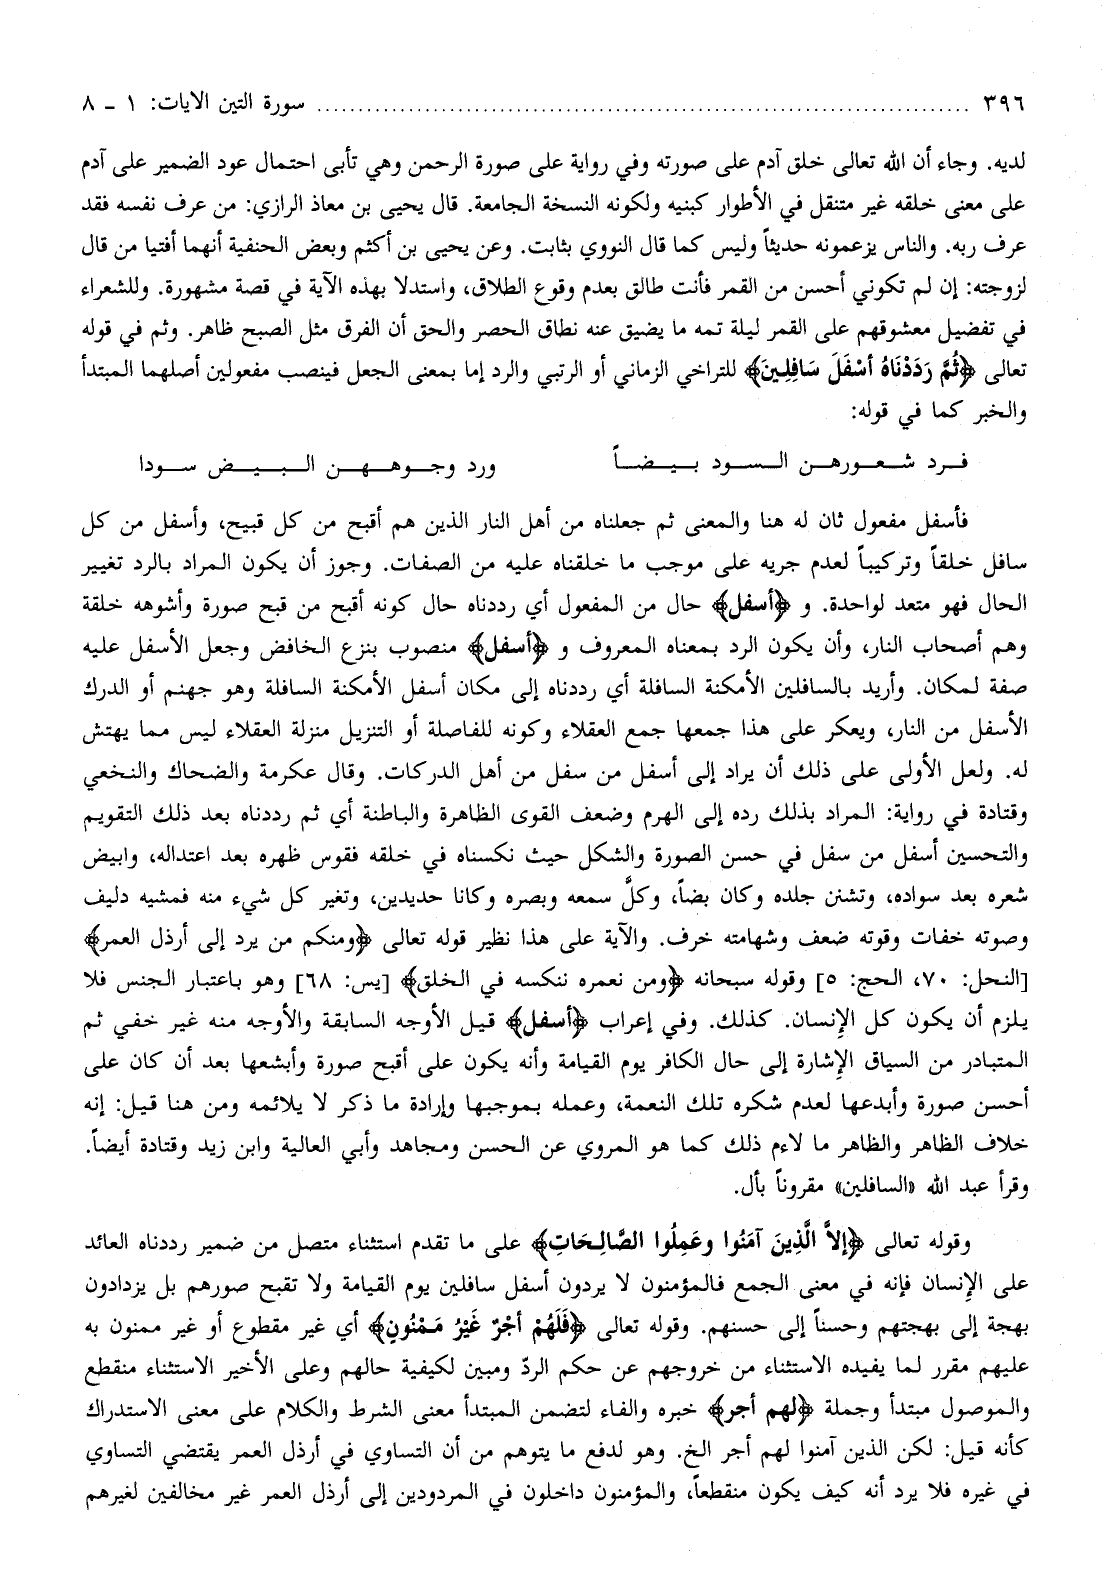 ٣٩٦ ........................................................................... سورة التين الآيات: ١ ـ ٨
لديه. وجاء أن الله تعالى خلق آدم على صورته وفي رواية على صورة الرحمن وهي تأبى احتمال عود الضمير على آدم
على معنى خلقه غير متنقل في الأطوار كبنيه ولكونه النسخة الجامعة. قال يحيى بن معاذ الرازي: من عرف نفسه فقد
عرف ربه. والناس يزعمونه حديثاً وليس كما قال النووي بثابت. وعن يحيى بن أكثم وبعض الحنفية أنهما أفتيا من قال
لزوجته: إن لم تكوني أحسن من القمر فأنت طالق بعدم وقوع الطلاق، واستدلا بهذه الآية في قصة مشهورة. وللشعراء
في تفضيل معشوقهم على القمر ليلة تمه ما يضيق عنه نطاق الحصر والحق أن الفرق مثل الصبح ظاهر. وثم في قوله
تعالى ﴿ثُمَّ رَدَدْنَاهُ أَسْفَلَ سَافِلِينَ﴾ للتراخي الزماني أو الرتبي والرد إما بمعنى الجعل فينصب مفعولين أصلهما المبتدأ
والخبر كما في قوله:
فــرد شــعــورهــن الــسـود بــيــضــاً ورد وجــوهــهــن الــبــيــض ســودا
فأسفل مفعول ثان له هنا والمعنى ثم جعلناه من أهل النار الذين هم أقبح من كل قبيح، وأسفل من كل
سافل خلقاً وتركيباً لعدم جريه على موجب ما خلقناه عليه من الصفات. وجوز أن يكون المراد بالرد تغيير
الحال فهو متعد لواحدة. و ﴿أسفل﴾ حال من المفعول أي رددناه حال كونه أقبح من قبح صورة وأشوهه خلقة
وهم أصحاب النار، وأن يكون الرد بمعناه المعروف و ﴿أسفل﴾ منصوب بنزع الخافض وجعل الأسفل عليه
صفة لمكان. وأريد بالسافلين الأمكنة السافلة أي رددناه إلى مكان أسفل الأمكنة السافلة وهو جهنم أو الدرك
الأسفل من النار، ويعكر على هذا جمعها جمع العقلاء وكونه للفاصلة أو التنزيل منزلة العقلاء ليس مما يهتش
له. ولعل الأولى على ذلك أن يراد إلى أسفل من سفل من أهل الدركات. وقال عكرمة والضحاك والنخعي
وقتادة في رواية: المراد بذلك رده إلى الهرم وضعف القوى الظاهرة والباطنة أي ثم رددناه بعد ذلك التقويم
والتحسين أسفل من سفل في حسن الصورة والشكل حيث نكسناه في خلقه فقوس ظهره بعد اعتداله، وابيض
شعره بعد سواده، وتشنن جلده وكان بضاً، وكلَّ سمعه وبصره وكانا حديدين، وتغير كل شيء منه فمشيه دليف
وصوته خفات وقوته ضعف وشهامته خرف. والآية على هذا نظير قوله تعالى ﴿ومنكم من يرد إلى أرذل العمر﴾
[النحل: ٧٠، الحج: ٥] وقوله سبحانه ﴿ومن نعمره ننكسه في الخلق﴾ [يس: ٦٨] وهو باعتبار الجنس فلا
يلزم أن يكون كل الإنسان. كذلك. وفي إعراب ﴿أسفل﴾ قيل الأوجه السابقة والأوجه منه غير خفي ثم
المتبادر من السياق الإشارة إلى حال الكافر يوم القيامة وأنه يكون على أقبح صورة وأبشعها بعد أن كان على
أحسن صورة وأبدعها لعدم شكره تلك النعمة، وعمله بموجبها وإرادة ما ذكر لا يلائمه ومن هنا قيل: إنه
خلاف الظاهر والظاهر ما لاءم ذلك كما هو المروي عن الحسن ومجاهد وأبي العالية وابن زيد وقتادة أيضاً.
وقرأ عبد الله «السافلين» مقروناً بأل.
وقوله تعالى ﴿إلاَّ الَّذِينَ آمَنُوا وعَمِلُوا الصَّالِحَاتِ﴾ على ما تقدم استثناء متصل من ضمير رددناه العائد
على الإنسان فإنه في معنى الجمع فالمؤمنون لا يردون أسفل سافلين يوم القيامة ولا تقبح صورهم بل يزدادون
بهجة إلى بهجتهم وحسناً إلى حسنهم. وقوله تعالى ﴿فَلَهُمْ أَجْرٌ غَيْرُ مَمْنُونٍ﴾ أي غير مقطوع أو غير ممنون به
عليهم مقرر لما يفيده الاستثناء من خروجهم عن حكم الردّ ومبين لكيفية حالهم وعلى الأخير الاستثناء منقطع
والموصول مبتدأ وجملة ﴿لهم أجر﴾ خبره والفاء لتضمن المبتدأ معنى الشرط والكلام على معنى الاستدراك
كأنه قيل: لكن الذين آمنوا لهم أجر الخ. وهو لدفع ما يتوهم من أن التساوي في أرذل العمر يقتضي التساوي
في غيره فلا يرد أنه كيف يكون منقطعاً، والمؤمنون داخلون في المردودين إلى أرذل العمر غير مخالفين لغيرهم